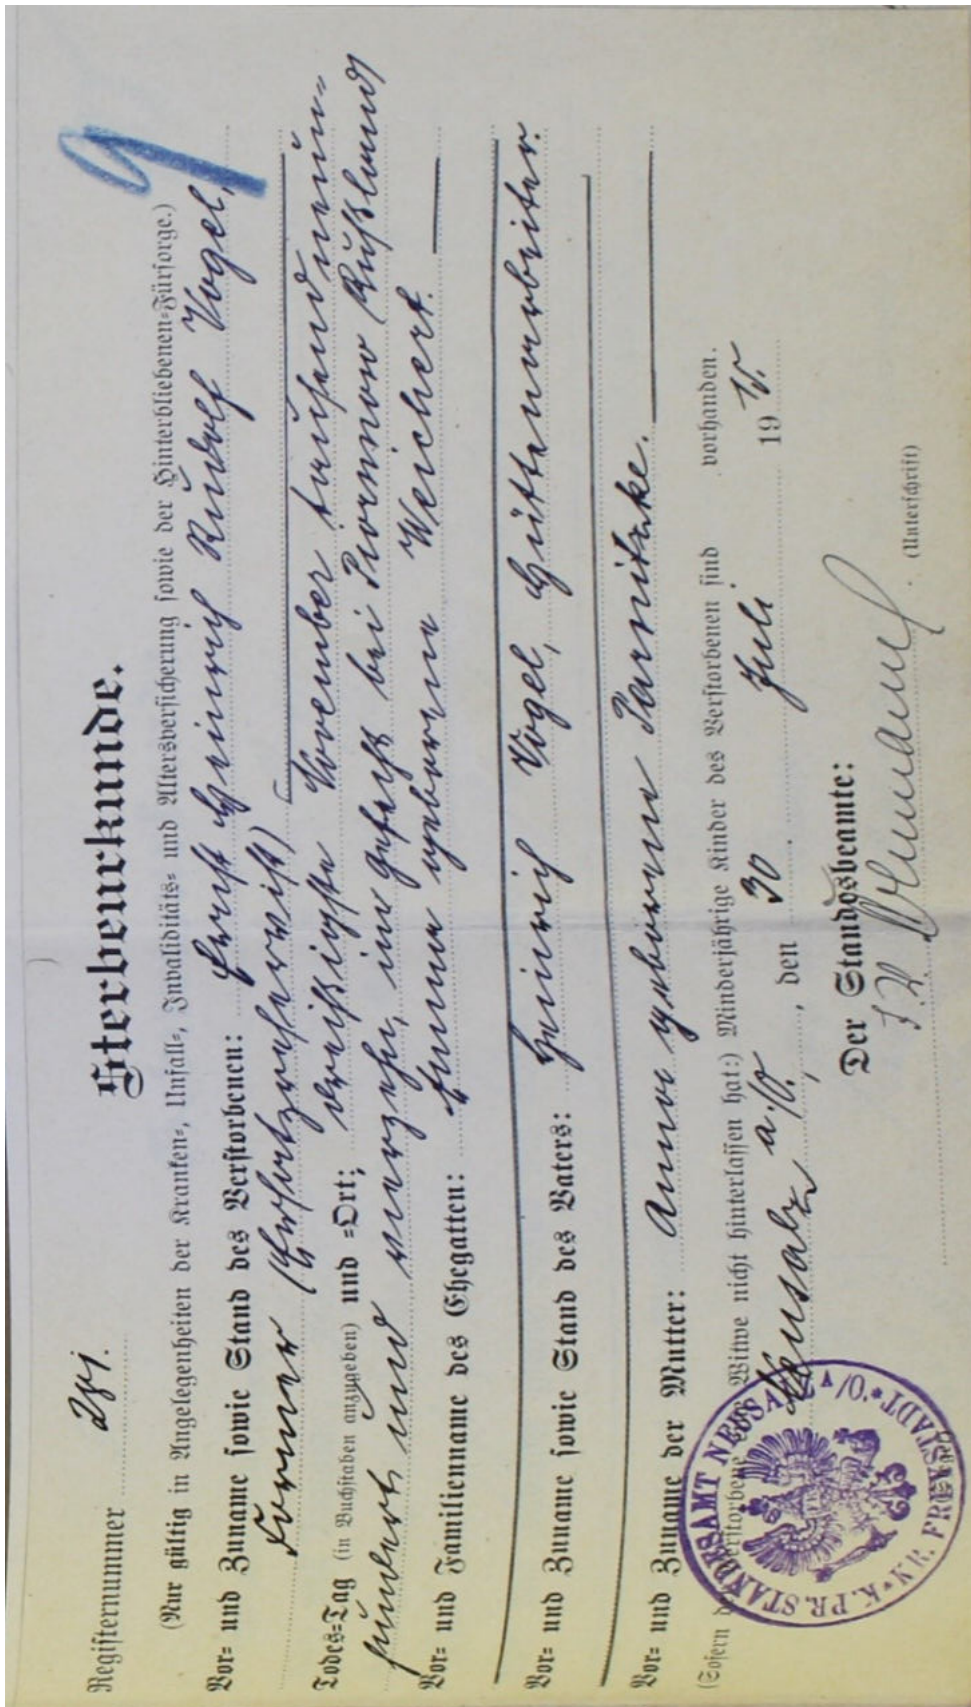 Registernummer
Sterbeurkunde.
(Nur gültig in Angelegenheiten der Kranken-, Unfall-, Invaliditäts- und Altersversicherung sowie der Hinterbliebenen-Fürsorge.)
Vor- und Zuname sowie Stand des Verstorbenen: Ernst Heinrich Rudolf Vogel,
Former (Ersatzreservist)
Todes-Tag (in Buchstaben anzugeben) und -Ort: dreißigste November tausendneun-
hundert und vierzehn, im Gefecht bei (Rußland)
Vor- und Familienname des Ehegatten: Emma geborene Weichert.
Vor- und Zuname sowie Stand des Vaters: Heinrich Vogel, Hüttenarbeiter.
Vor- und Zuname der Mutter: Anna geborene Parnitzke.
(Sofern der Verstorbene eine Witwe nicht hinterlassen hat:) Minderjährige Kinder des Verstorbenen sind vorhanden.
Neusalz a./O., den 30 Juli 19
Der Standesbeamte:
J.V.
(Unterschrift)
K. PR. STANDESAMT NEUSALZ A/O. * KR. FREYSTADT *